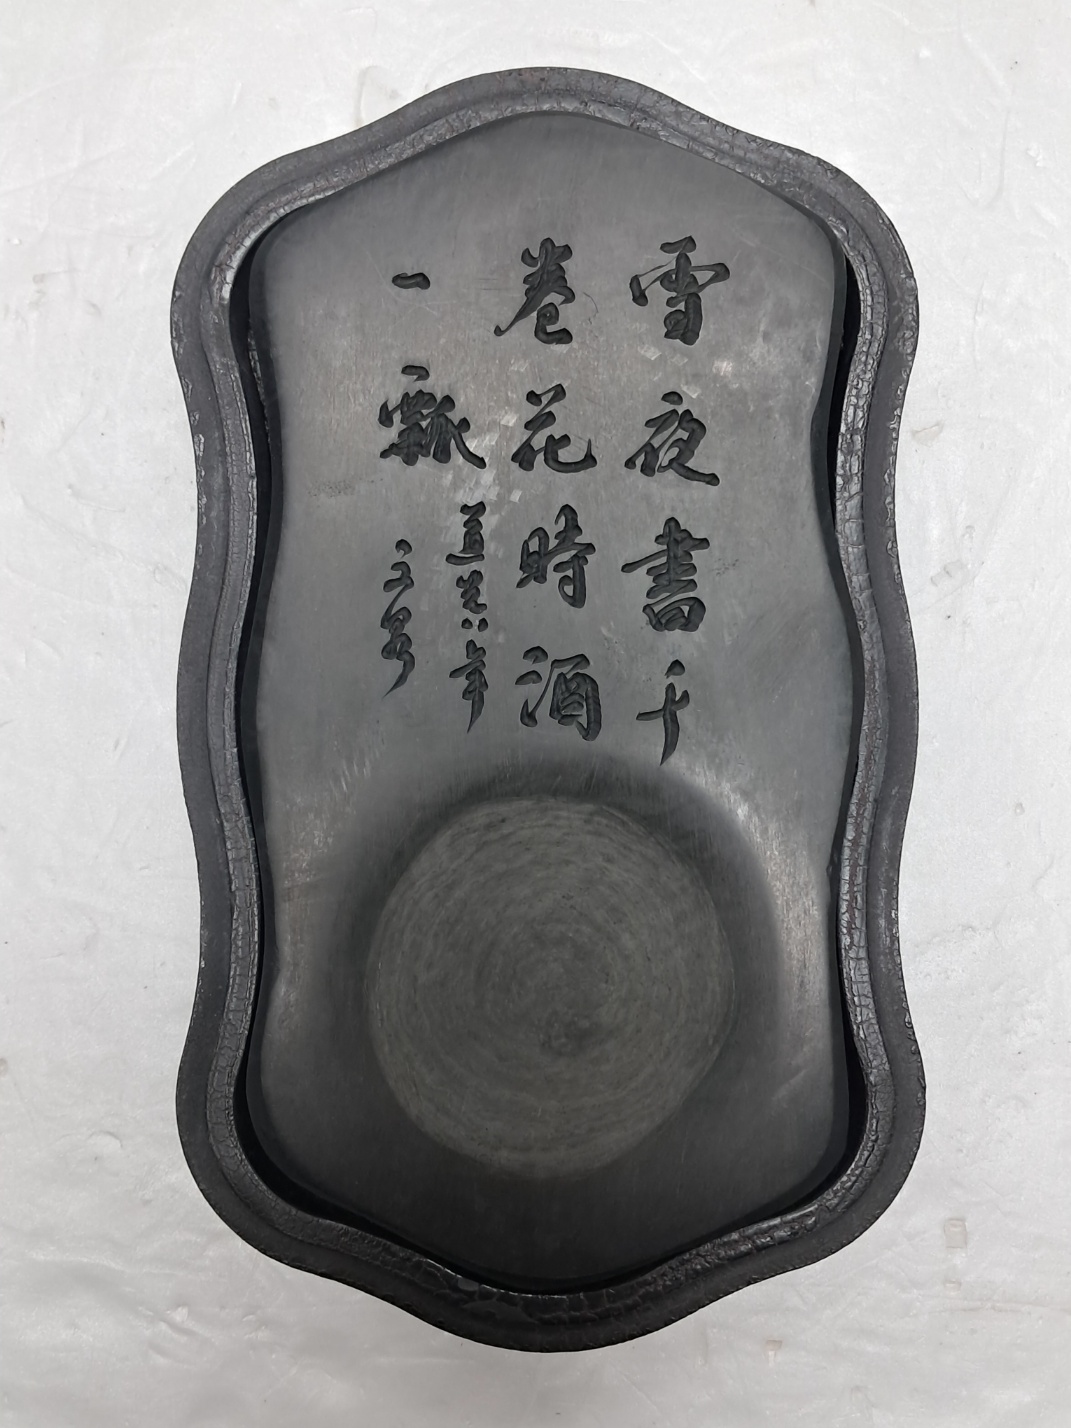 雪夜書千
卷花時酒
一瓢
道光八年
文泉